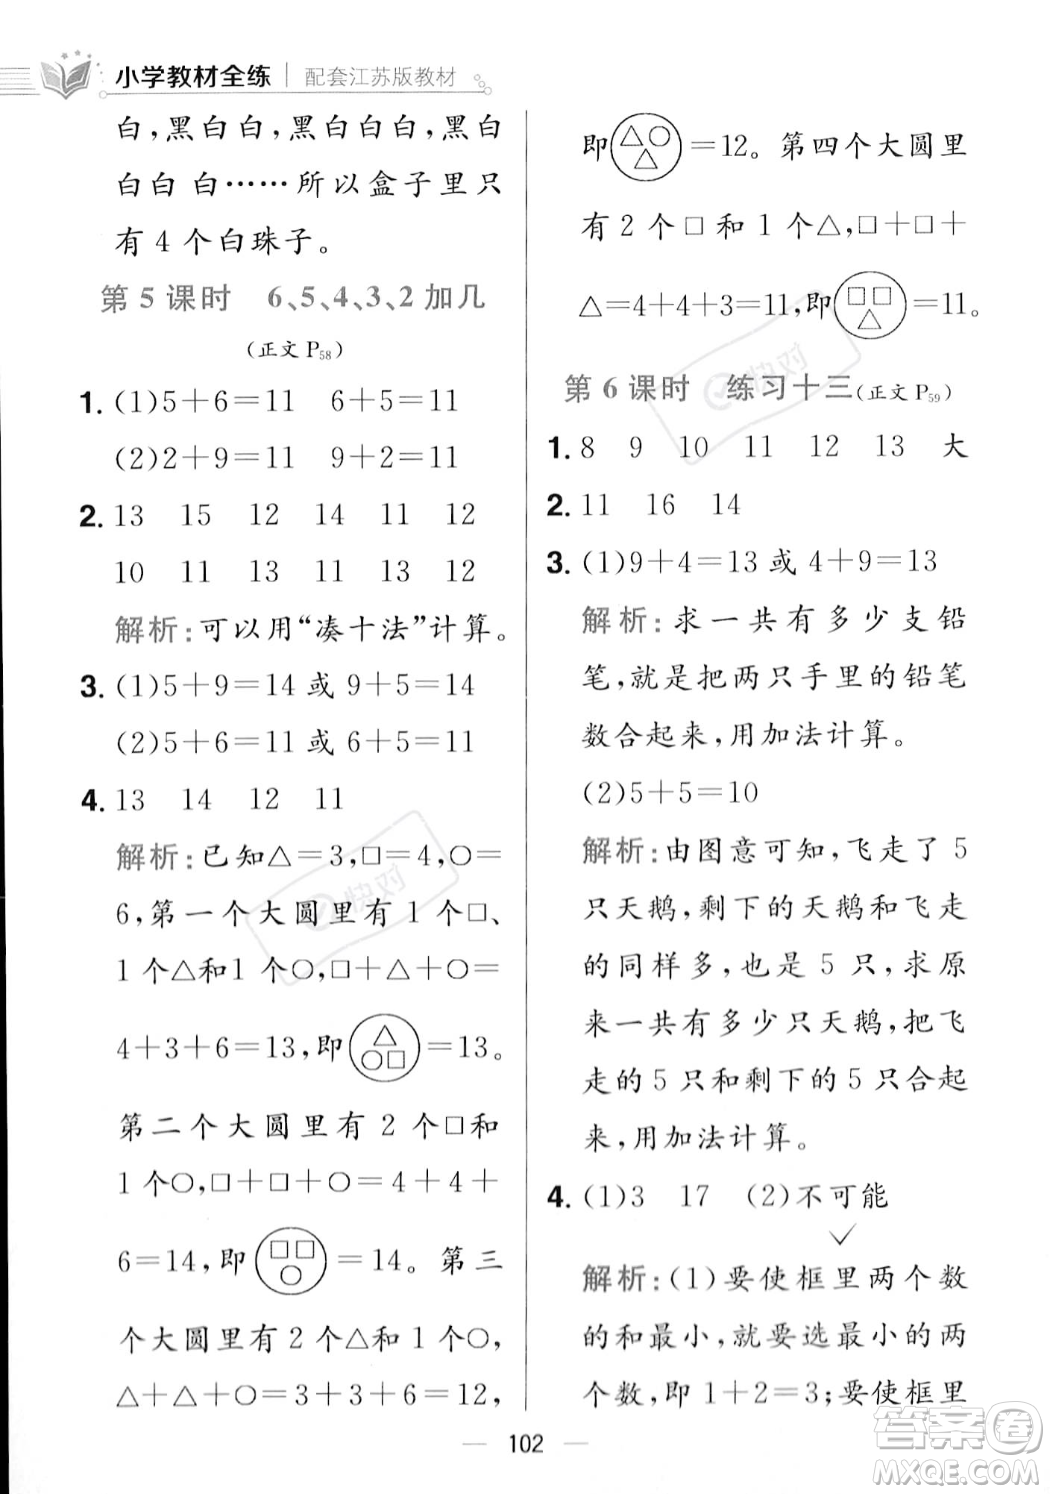 小学教材全练 | 配套江苏版教材
白,黑白白,黑白白白,黑白
白白 白……所以盒子里只
有 4 个白珠子。
第 5 课时 6、5、4、3、2 加几
(正文 P58)
1. (1)5+6=11 6+5=11
(2)2+9=11 9+2=11
2. 13 15 12 14 11 12
10 11 13 11 13 12
解析:可以用“凑十法”计算。
3. (1)5+9=14 或 9+5=14
(2)5+6=11 或 6+5=11
4. 13 14 12 11
解析:已知△=3,□=4,○=
6,第一个大圆里有 1 个□、
1 个△和1 个○,□+△+○=
4+3+6=13,即(△○□)=13。
第二个大圆里有 2 个□和
1 个○,□+□+○=4+4+
6=14,即(□□○)=14。第三
个大圆里有 2 个△和 1 个○,
△+△+○=3+3+6=12,
即(△○△)=12。第四个大圆里
有 2 个□和 1 个△,□+□+
△=4+4+3=11,即(□□△)=11。
第 6 课时 练习十三(正文 P59)
1. 8 9 10 11 12 13 大
2. 11 16 14
3. (1)9+4=13 或 4+9=13
解析:求一共有多少支铅
笔,就是把两只手里的铅笔
数合起来,用加法计算。
(2)5+5=10
解析:由图意可知,飞走了 5
只天鹅,剩下的天鹅和飞走
的同样多,也是 5 只,求原
来一共有多少只天鹅,把飞
走的 5 只和剩下的 5 只合起
来,用加法计算。
4. (1)3 17 (2)不可能
✓
解析:(1)要使框里两个数
的和最小,就要选最小的两
个数,即 1+2=3;要使框里
102
快对
快对
答案卷
MXQE.COM